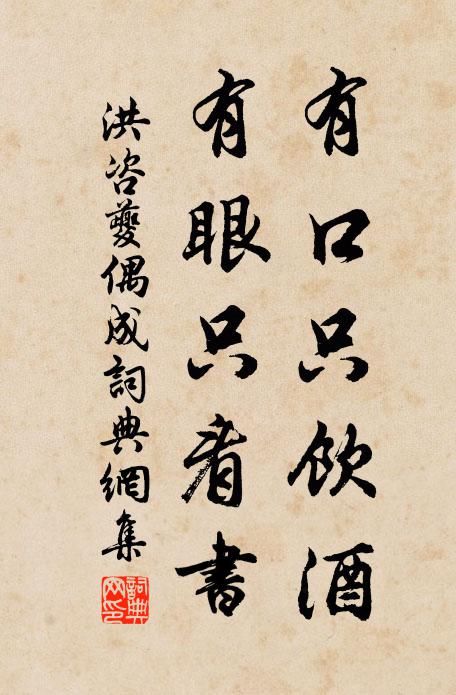 有口只飲酒
有眼只看書
洪咨夔偶成詞典網集
詞典網印